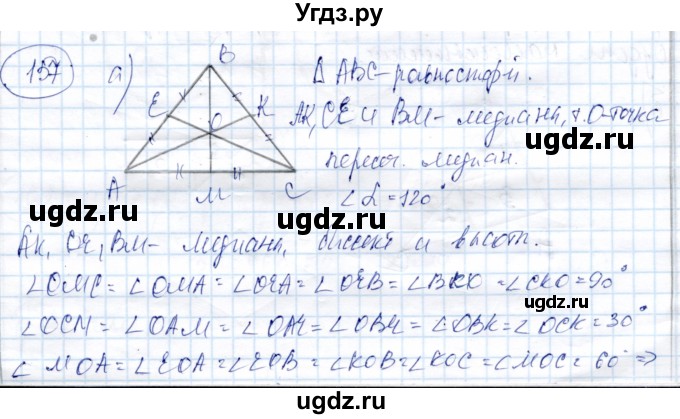 Угдз.ру
137 а)
B
E K
O
A M C
Δ ABC - равностор-й.
AK, CE и BM - медианы, т. O - точка
пересеч. медиан.
∠α = 120°
gdz.ru
gdz.ru
AK, CЕ, BM - медианы, биссект и высоты.
∠OMC = ∠OMA = ∠OЕA = ∠OЕB = ∠BKO = ∠CKO = 90°
gdz.ru
∠OCM = ∠OAM = ∠OAЕ = ∠OBЕ = ∠OBK = ∠OCK = 30°
∠MOA = ∠EOA = ∠EOB = ∠KOB = ∠KOC = ∠MOC = 60° =>
gdz.ru